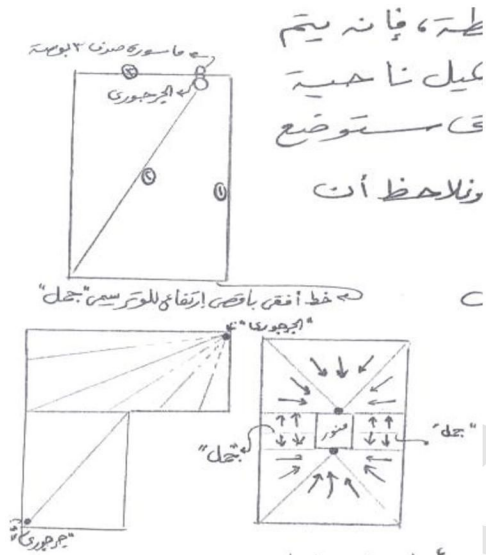 طة، فإنه يتم
ميل ناحية
ستوضع
ونلاحظ أن
ماسورة صرف ٣ بوصة
③
الجرجورى
②
①
خط أفقى بأقصى إرتفاع للوتر يسمى "جمل"
"الجرجورى"
"جمل"
منور
"جمل"
"جرجورى"